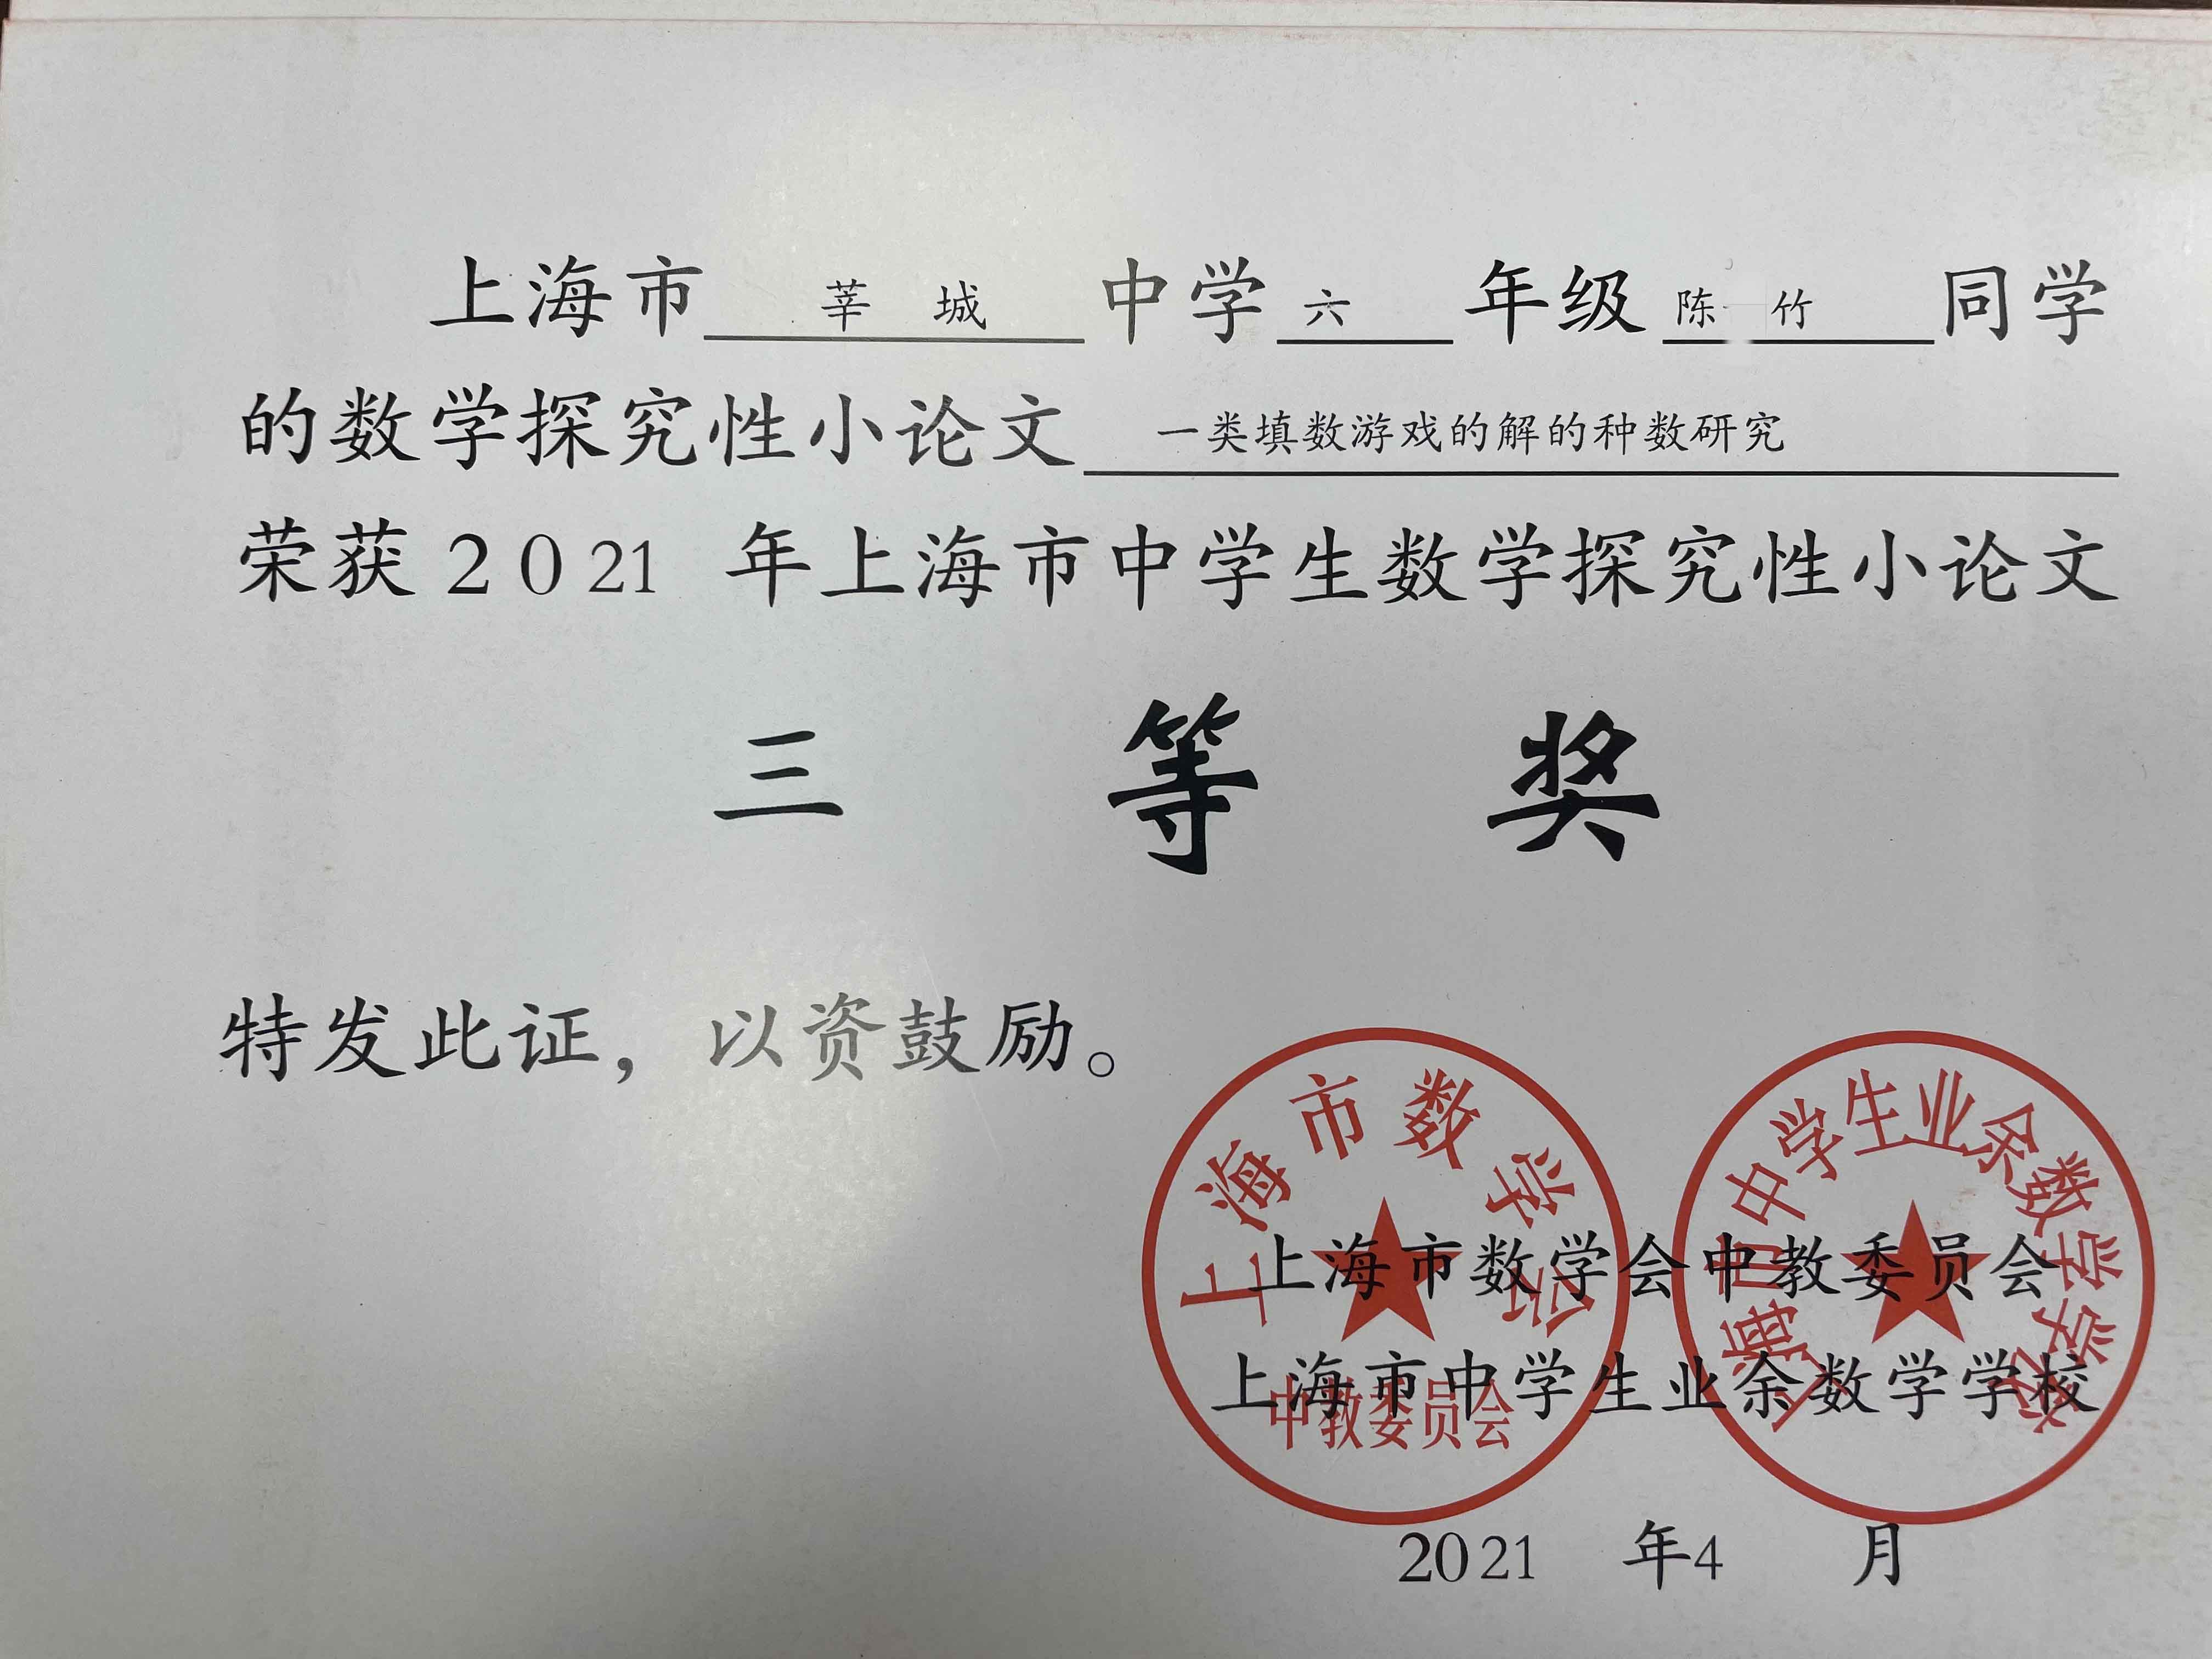 上海市 莘城 中学 六 年级 陈 竹 同学
的数学探究性小论文 一类填数游戏的解的种数研究
荣获2021 年上海市中学生数学探究性小论文
三 等 奖
特发此证，以资鼓励。
上海市数学会
中教委员会
上海市中学生业余数学学校
上海市数学会中教委员会
上海市中学生业余数学学校
2021 年4 月